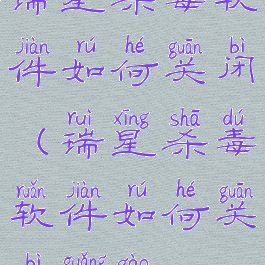 瑞星杀毒软
jiàn rú hé guān bì
件如何关闭
ruì xīng shā dú
（瑞星杀毒
ruǎn jiàn rú hé guān
软件如何关
bì guǎng gào